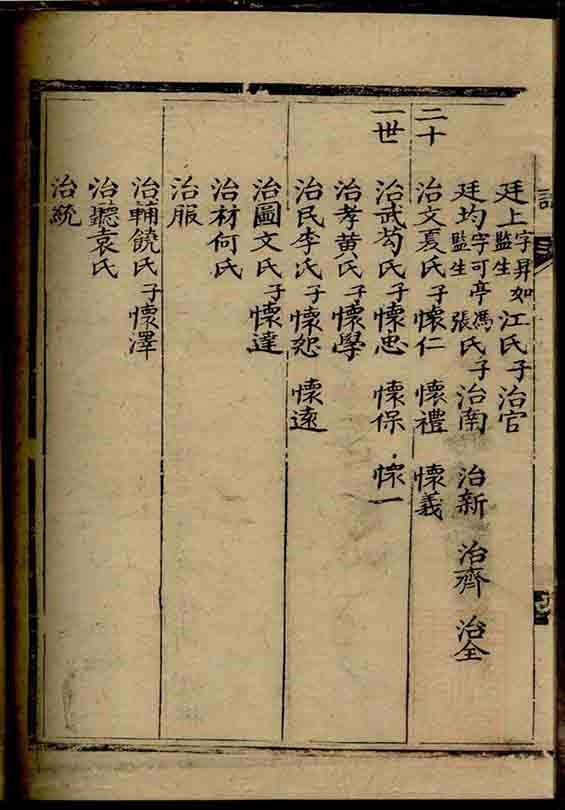 廷上字昇如監生江氏子治官
廷均字可亭監生馮張氏子治南 治新 治齊 治全
二十
治文夏氏子懷仁 懷禮 懷義
一世
治武芶氏子懷忠 懷保 懷一
治孝黃氏子懷學
治民李氏子懷恕 懷遠
治圖文氏子懷達
治材何氏
治服
治輔饒氏子懷澤
治聽袁氏
治統